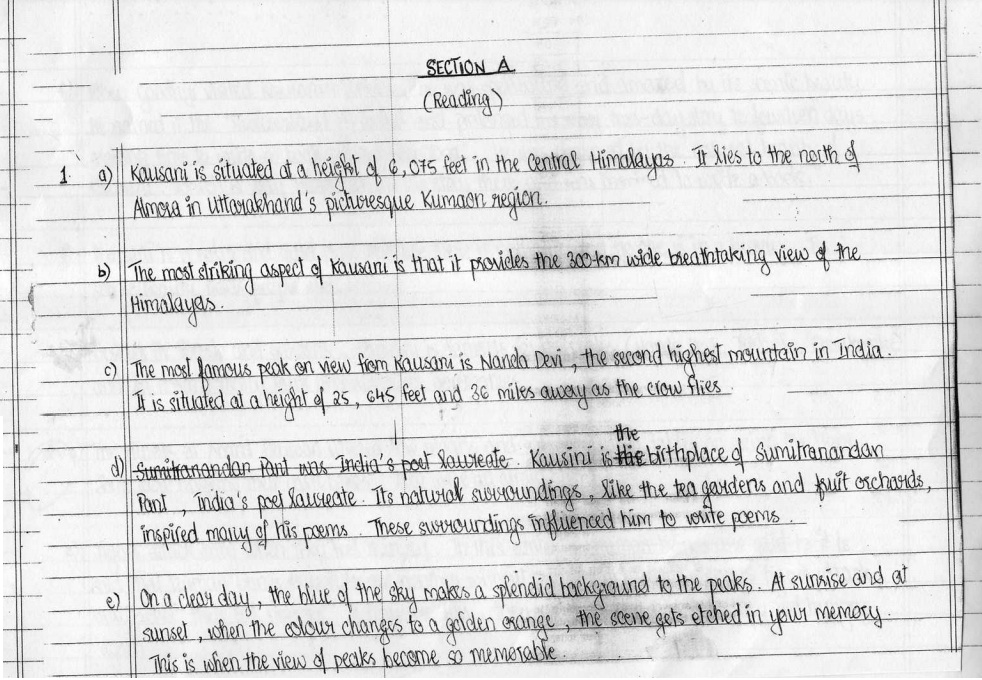 SECTION A
(Reading)
1 a) Kausani is situated at a height of 6,075 feet in the Central Himalayas. It lies to the north of
Almora in Uttarakhand's picturesque Kumaon region.
b) The most striking aspect of Kausani is that it provides the 300-km wide breathtaking view of the
Himalayas.
c) The most famous peak on view from Kausani is Nanda Devi, the second highest mountain in India.
It is situated at a height of 25, 645 feet and 36 miles away as the crow flies.
the
d) Sumitranandan Pant was India's poet laureate. Kausini is the birthplace of Sumitranandan
Pant, India's poet laureate. Its natural surroundings, like the tea gardens and fruit orchards,
inspired many of his poems. These surroundings influenced him to write poems.
e) On a clear day, the blue of the sky makes a splendid background to the peaks. At sunrise and at
sunset, when the colour changes to a golden orange, the scene gets etched in your memory.
This is when the view of peaks become so memorable.